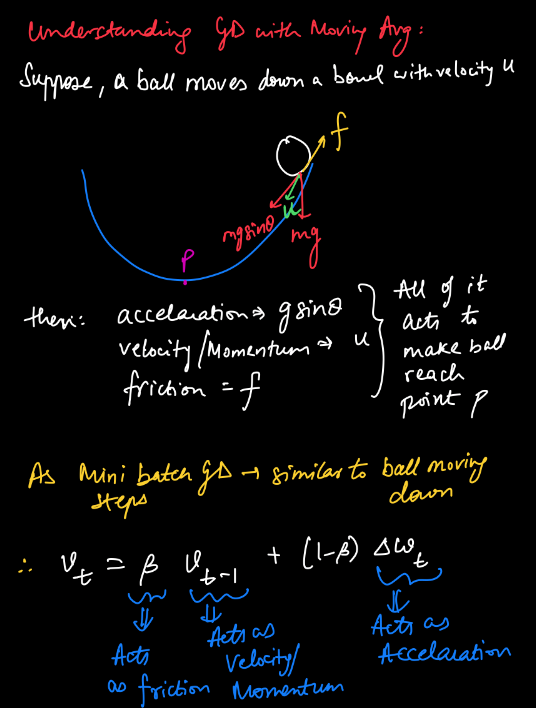 Understanding GD with Moving Avg:
Suppose, a ball moves down a bowl with velocity u
f
mgsinθ
u
mg
P
then: accelaration → gsinθ
velocity/Momentum → u
friction = f
All of it
acts to
make ball
reach
point P
As Mini batch GD → similar to ball moving
steps
down
∴ v_t = β v_{t-1} + (1-β) Δω_t
Acts
as friction
Acts as
velocity/
Momentum
Acts as
Accelaration